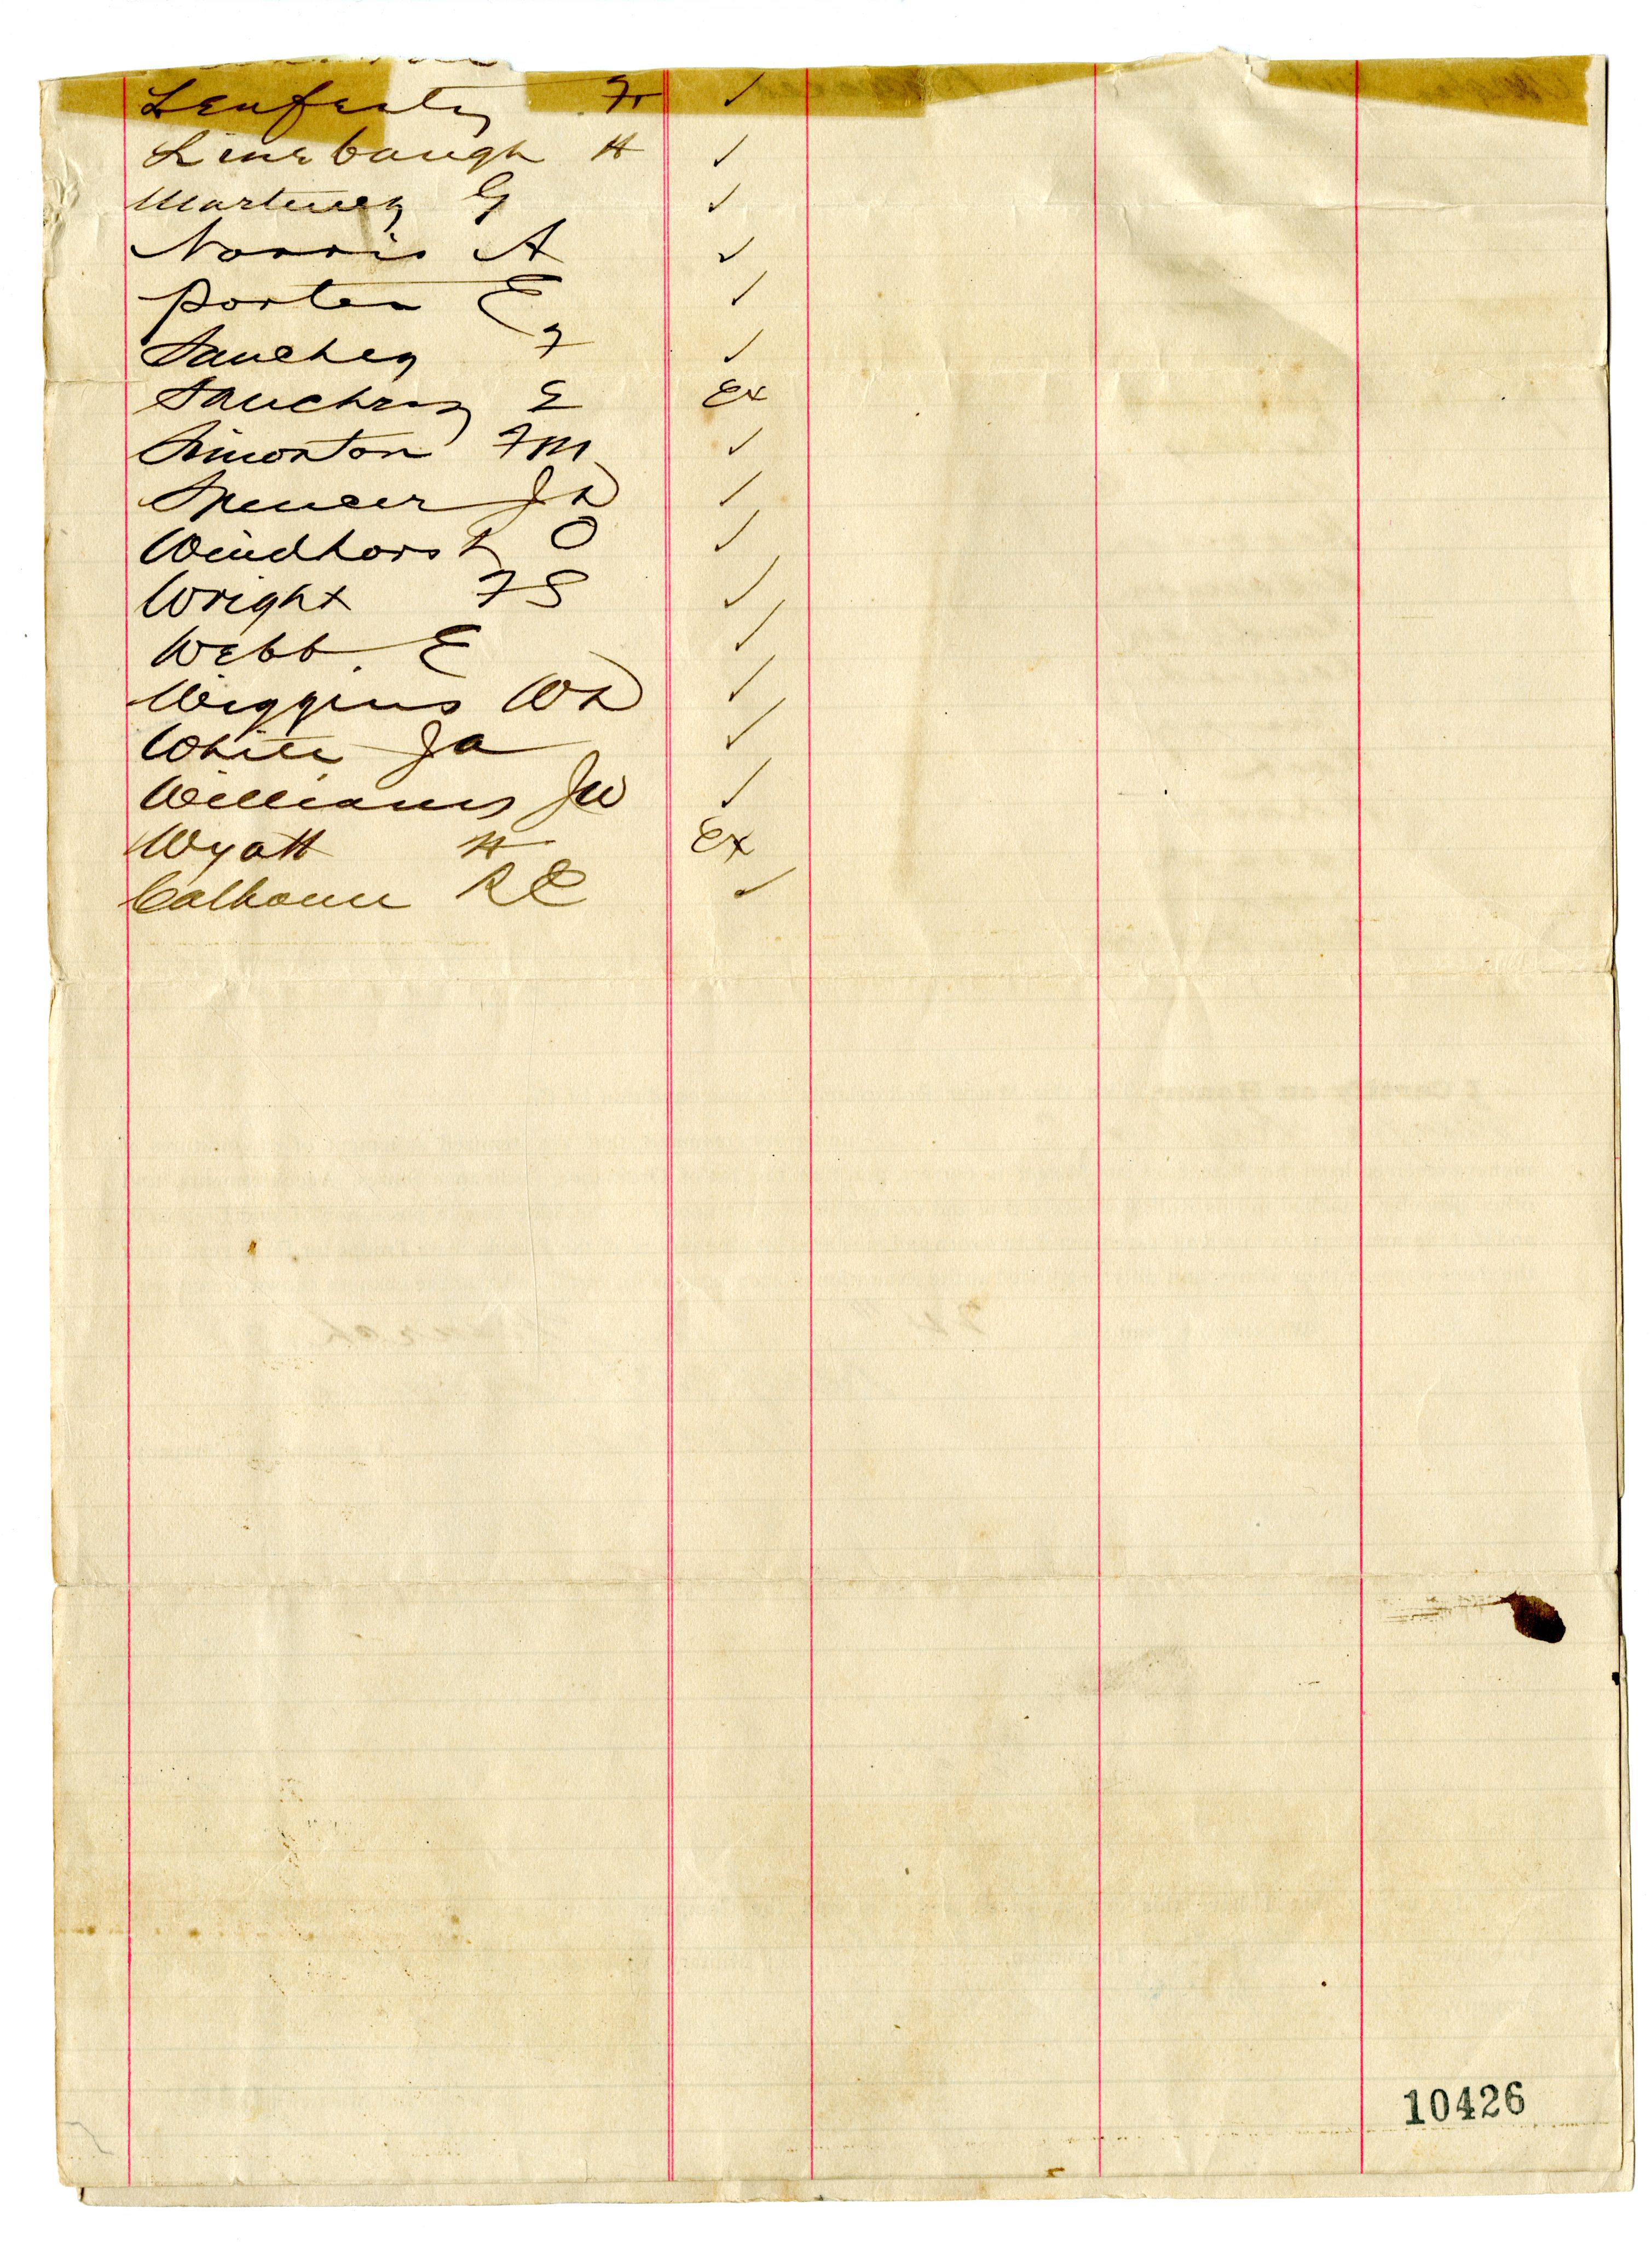 Lenfestey Fr ✓
Linebaugh H ✓
Martinez G ✓
Norris A ✓
Porter E ✓
Sanchez F ✓
Sanchez E Ex
Simonton FM ✓
Spencer JD ✓
Windhorst O ✓
Wright FS ✓
Webb E ✓
Wiggins WD ✓
White Ja ✓
Williams JW ✓
Wyatt H Ex
Calhoun RC ✓
10426